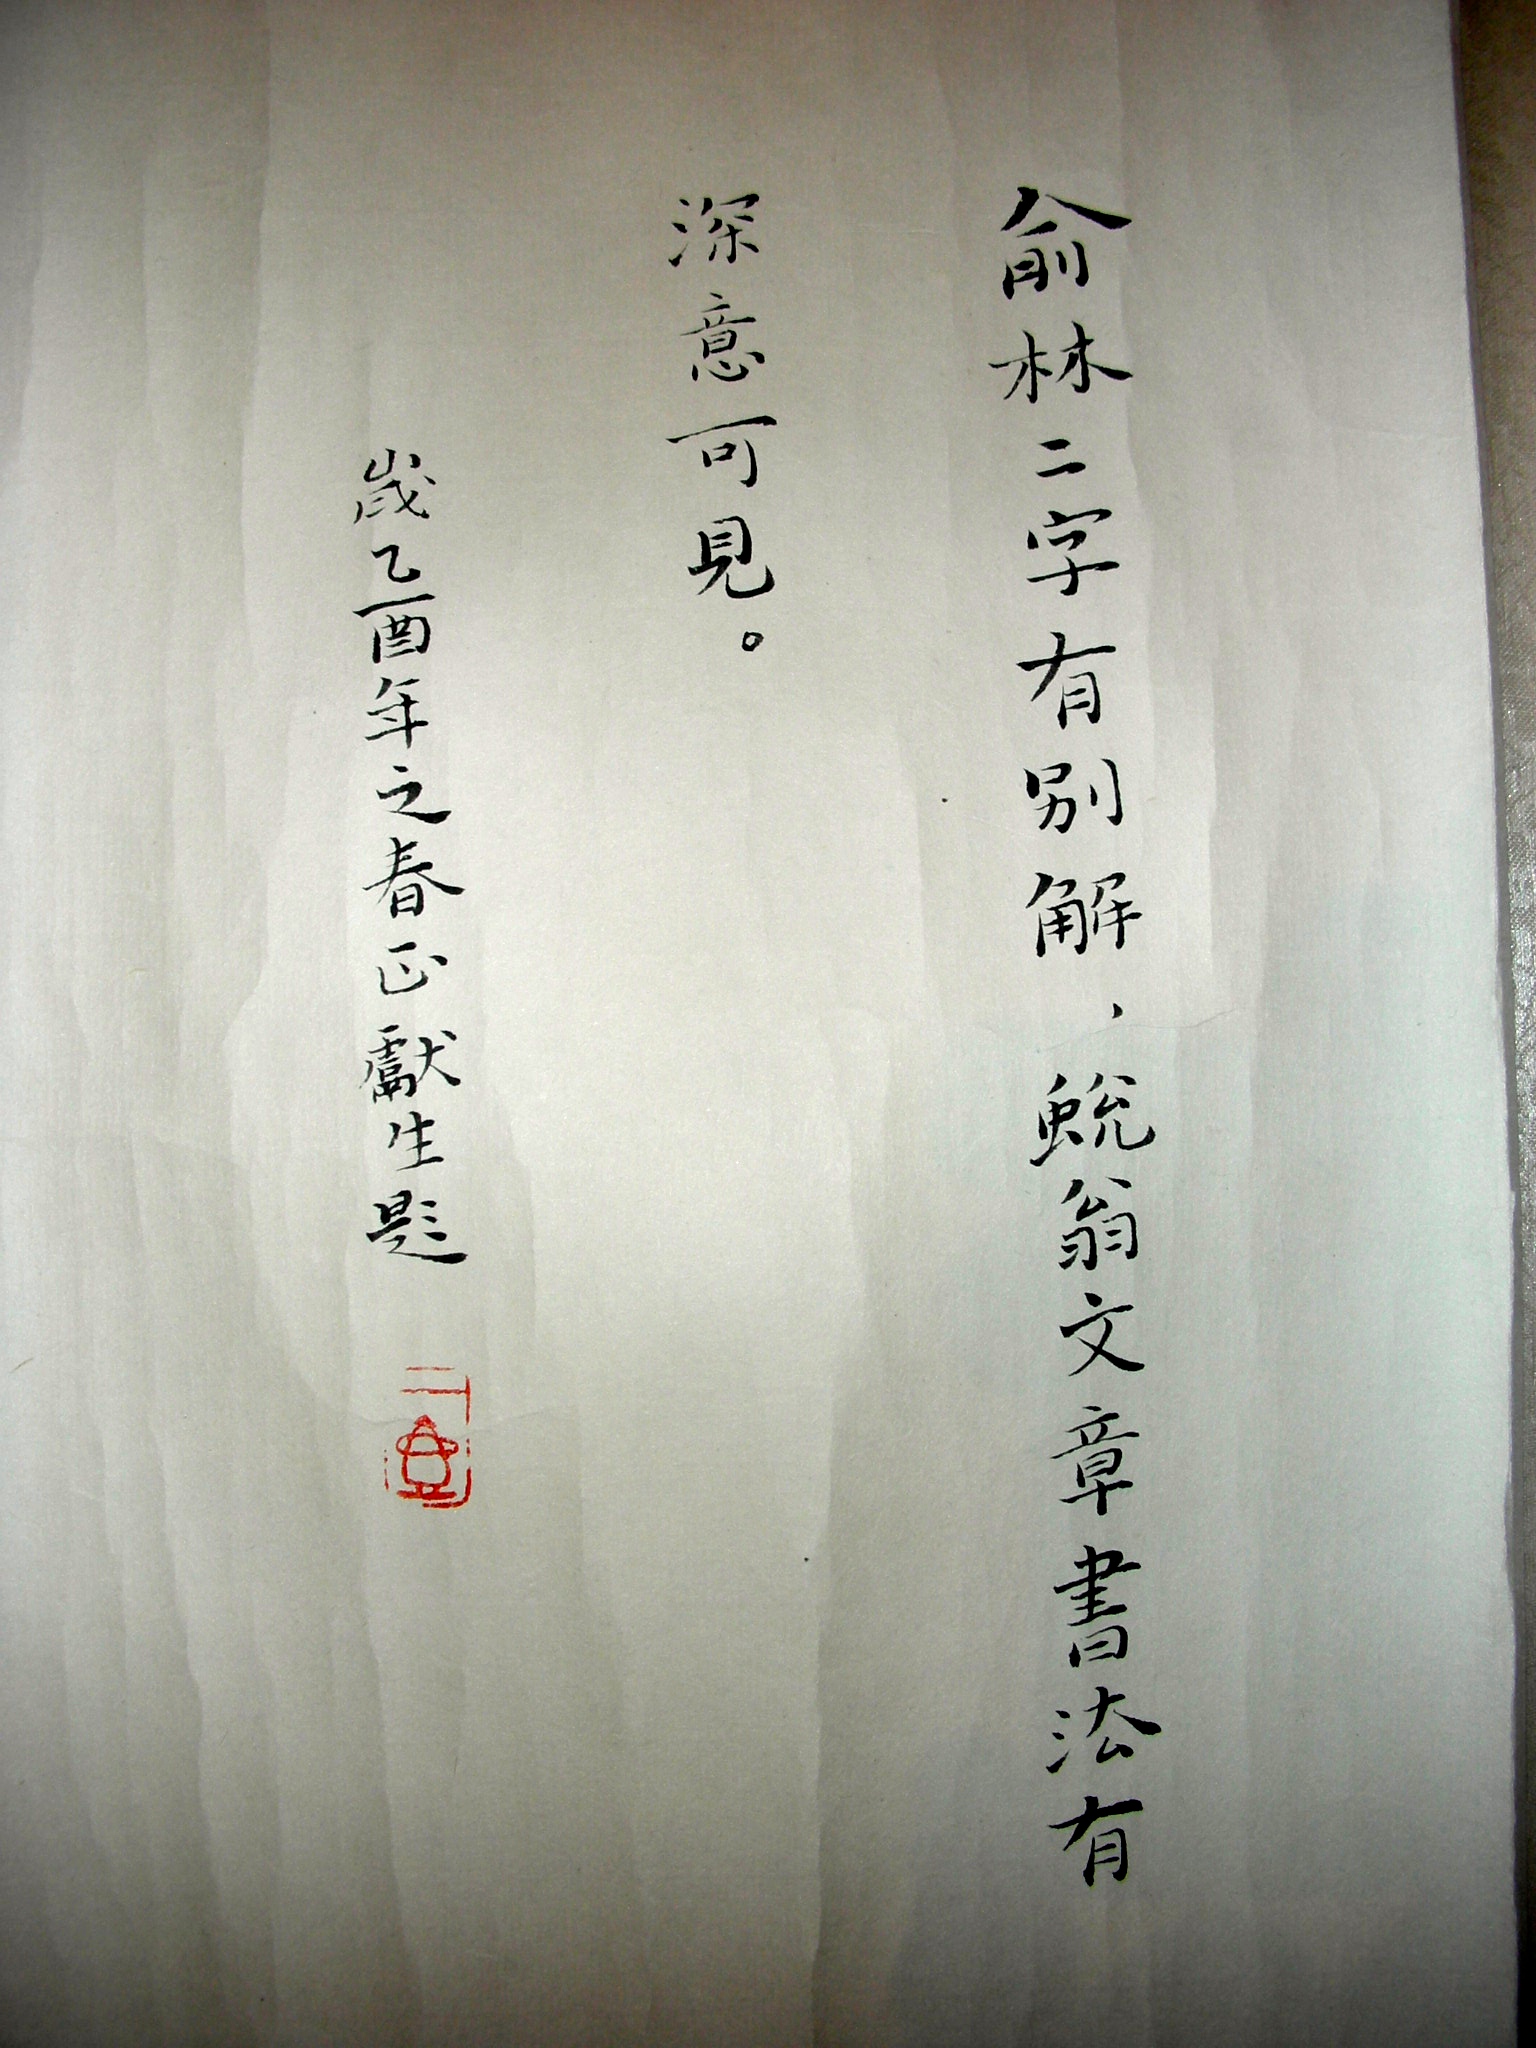 俞林二字有别解，蜕翁文章書法有
深意可見。
歲乙酉年之春正獻生題